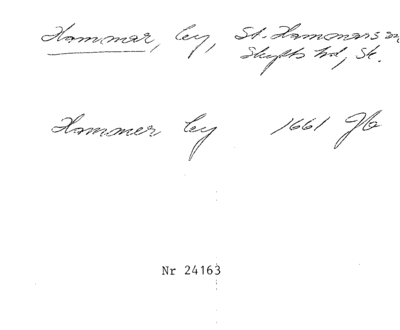 Hammar, ley, St. Hammars sn,
Skytts hd, Sk.
Hammer ley 1661 Jb
Nr 24163